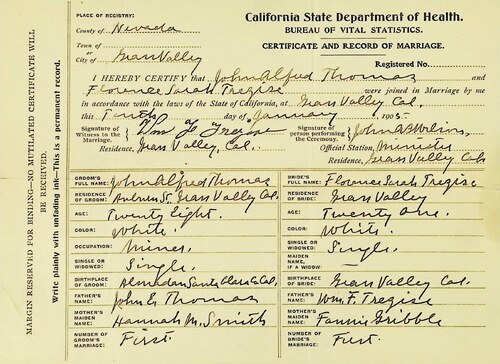 PLACE OF REGISTRY:
County of Nevada
Town of
or
City of Grass Valley
California State Department of Health.
BUREAU OF VITAL STATISTICS.
CERTIFICATE AND RECORD OF MARRIAGE.
Registered No.
I HEREBY CERTIFY that John Alfred Thomas and
Florence Sarah Tregise were joined in Marriage by me
in accordance with the laws of the State of California, at Grass Valley Cal.
this Tenth day of January 1905.
Signature of Witness to the Marriage, Wm F Tregise
Residence, Grass Valley, Cal.
Signature of person performing the Ceremony. John A Wilson,
Official Station, Minister
Residence, Grass Valley Cal
GROOM'S FULL NAME: John Alfred Thomas
RESIDENCE OF GROOM: Auburn St. Grass Valley Cal.
AGE: Twenty Eight.
COLOR: White.
OCCUPATION: Miner.
SINGLE OR WIDOWED: Single.
BIRTHPLACE OF GROOM: Almadan Santa Clara Co Cal.
FATHER'S NAME: John E Thomas
MOTHER'S MAIDEN NAME: Hannah M. Smith
NUMBER OF GROOM'S MARRIAGE: First.
BRIDE'S FULL NAME: Florence Sarah Tregise
RESIDENCE OF BRIDE: Grass Valley
AGE: Twenty One.
COLOR: White.
SINGLE OR WIDOWED: Single.
MAIDEN NAME, IF A WIDOW:
BIRTHPLACE OF BRIDE: Grass Valley Cal.
FATHER'S NAME: Wm. F. Tregise
MOTHER'S MAIDEN NAME: Fannie Gribble
NUMBER OF BRIDE'S MARRIAGE: First.
MARGIN RESERVED FOR BINDING—NO MUTILATED CERTIFICATE WILL
BE RECEIVED.
Write plainly with unfading ink—This is a permanent record.